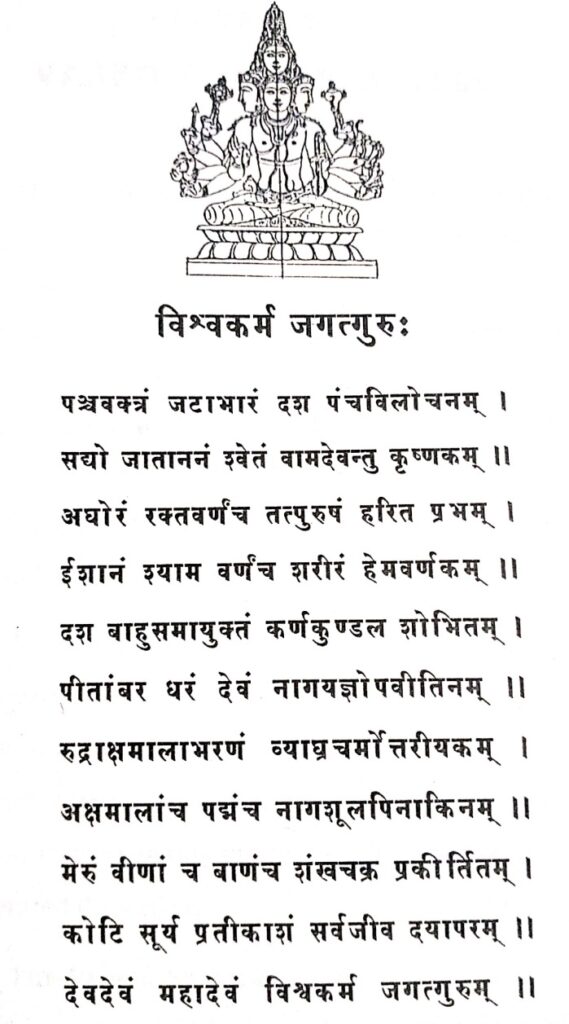 विश्वकर्म जगत्गुरुः
पञ्चवक्त्रं जटाभारं दश पंचविलोचनम् ।
सद्यो जाताननं श्वेतं वामदेवन्तु कृष्णकम् ॥
अघोरं रक्तवर्णंच तत्पुरुषं हरित प्रभम् ।
ईशानं श्याम वर्णंच शरीरं हेमवर्णकम् ॥
दश बाहुसमायुक्तं कर्णकुण्डल शोभितम् ।
पीतांबर धरं देवं नागयज्ञोपवीतिनम् ॥
रुद्राक्षमालाभरणं व्याघ्रचर्मोत्तरीयकम् ।
अक्षमालांच पद्मंच नागशूलपिनाकिनम् ॥
मेरुं वीणां च बाणंच शंखचक्र प्रकीर्तितम् ।
कोटि सूर्य प्रतीकाशं सर्वजीव दयापरम् ॥
देवदेवं महादेवं विश्वकर्म जगत्गुरुम् ॥